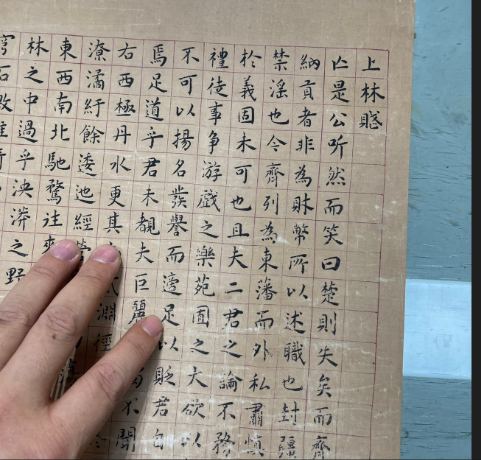 上林賦
亡是公听然而笑曰楚則失矣而齊
納貢者非為財幣所以述職也封疆
禁淫也今齊列為東藩而外私肅慎
於義固未可也且夫二君之論不務
禮徒事争游戲之樂苑囿之大欲以
不可以揚名發譽而適足以貶君自
焉足道乎君未覩夫巨麗不聞
右西極丹水更其淵徑
潦潏紆餘委迤經
東西南北馳騖往來
林之中過乎泱漭之野
穹石